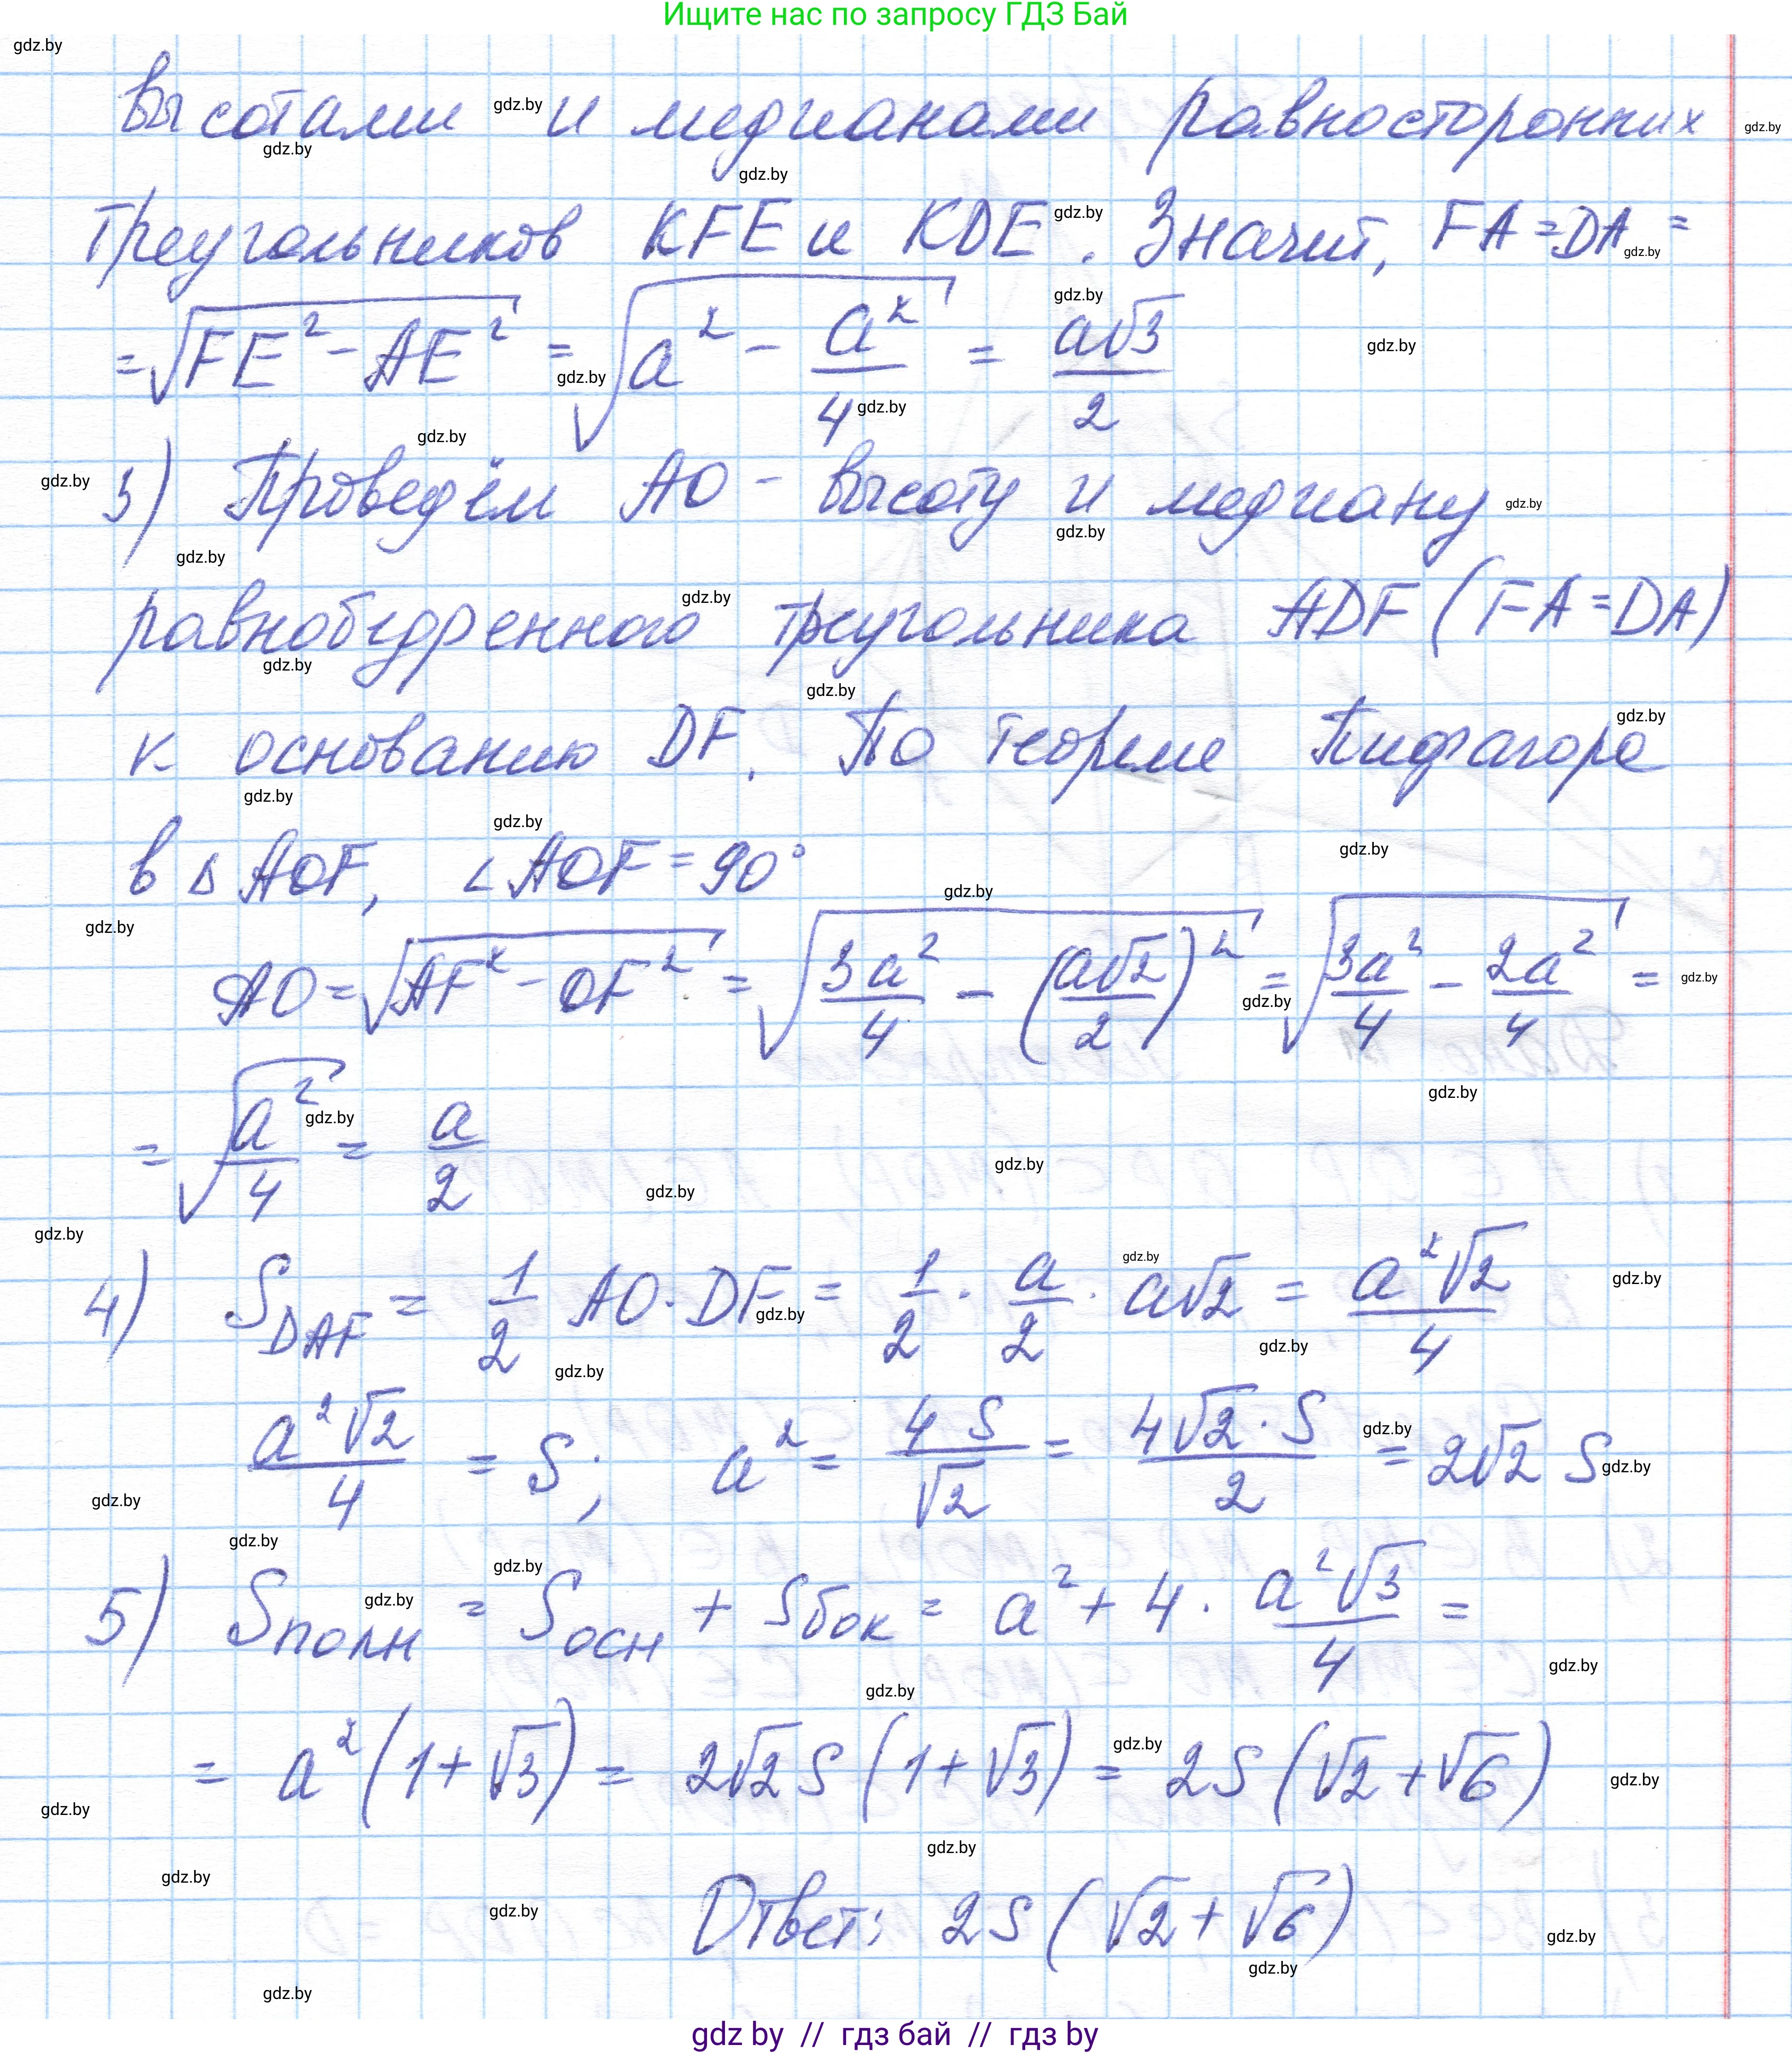 Ищите нас по запросу ГДЗ Бай
высотами и медианами равносторонних
треугольников KFE и KDE. Значит, FA = DA =
= √(FE² - AE²) = √(a² - a²/4) = a√3/2
3) Проведём AO - высоту и медиану
равнобедренного треугольника ADF (FA = DA)
к основанию DF. По теореме Пифагора
в △ AOF, ∠AOF = 90°
AO = √(AF² - OF²) = √(3a²/4 - (a√2/2)²) = √(3a²/4 - 2a²/4) =
= √(a²/4) = a/2
4) S_DAF = 1/2 AO · DF = 1/2 · a/2 · a√2 = a²√2/4
a²√2/4 = S; a² = 4S/√2 = 4√2·S/2 = 2√2 S
5) Sполн = Sосн + Sбок = a² + 4 · a²√3/4 =
= a²(1+√3) = 2√2S(1+√3) = 2S(√2+√6)
Ответ: 2S(√2+√6)
gdz by // гдз бай // гдз by